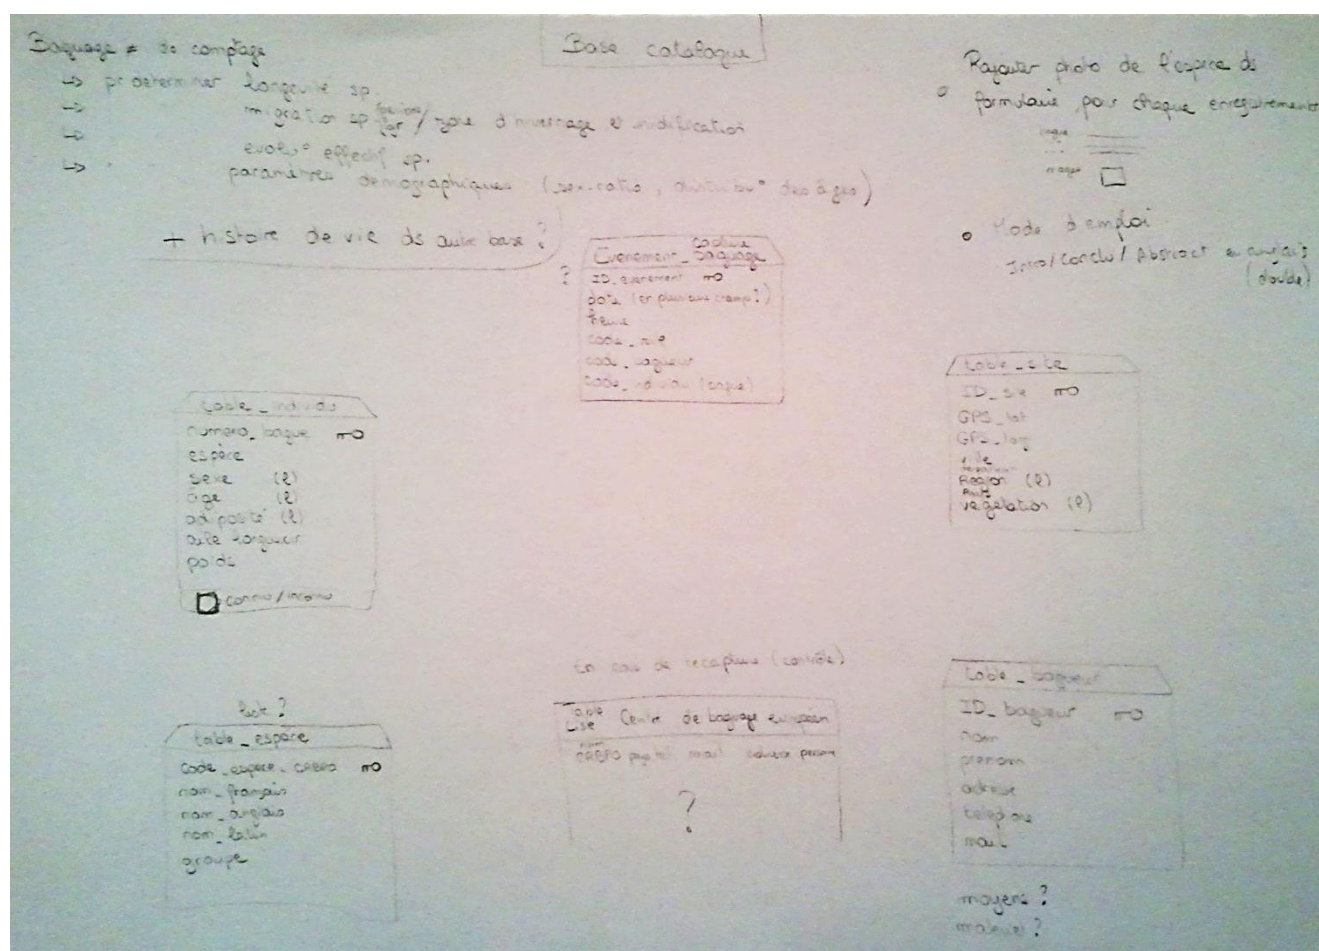 Baguage ≠ de comptage
↳ pr determiner longévité sp.
↳ migration sp / zone d'hivernage et nidification
↳ evolu° effectif sp.
↳ paramètres démographiques (sex-ratio, distribu° des âges)
+ histoire de vie ds autre base ?
Base catalogue
Rajouter photo de l'espèce ds
formulaire pour chaque enregistrement
Mode d'emploi
Intro/Conclu/Abstract en anglais
(double)
capture
Evenement_baguage
? ID_evenement
date (en plusieurs champs ?)
heure
code_site
code_bagueur
code_individu (bague)
table_site
ID_site
GPS_lat
GPS_long
ville
departement
Region (l)
végétation (l)
table_individu
numero_bague
espèce
sexe (l)
âge (l)
adiposité (l)
aile longueur
poids
connu/inconnu
liste ?
table_espece
code_espece_CRBPO
nom_français
nom_anglais
nom_latin
groupe
En cas de recapture (contrôle)
Table
Liste Centre de baguage européen
nom
CRBPO pays tel mail adresse person
?
table_bagueur
ID_bagueur
nom
prenom
adresse
telephone
mail
moyens ?
materiel ?